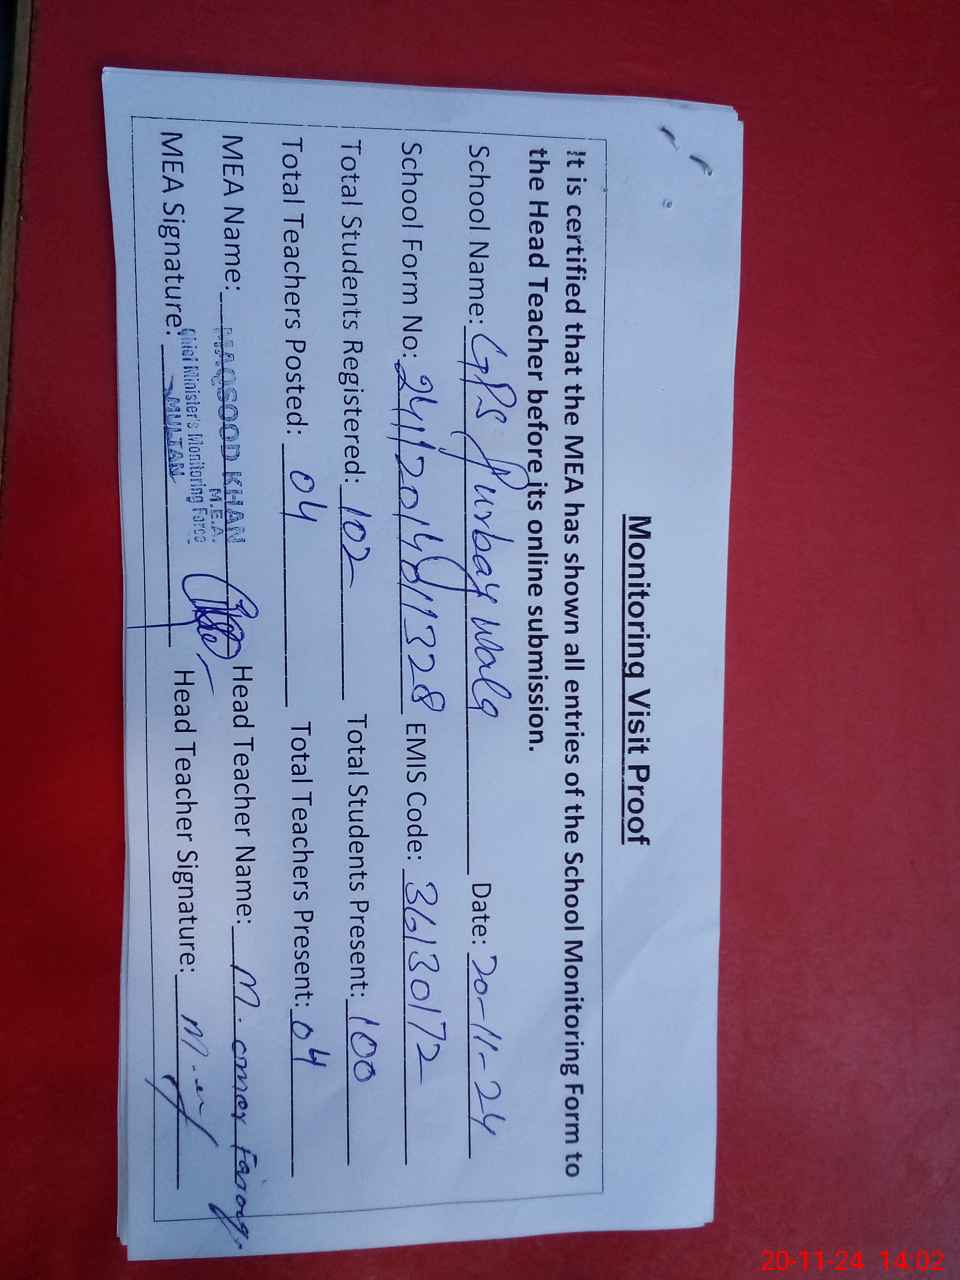 Monitoring Visit Proof
It is certified that the MEA has shown all entries of the School Monitoring Form to
the Head Teacher before its online submission.
School Name: GPS Purbay Wala Date: 20-11-24
School Form No: EMIS Code: 36130172
Total Students Registered: 102 Total Students Present: 100
Total Teachers Posted: 04 Total Teachers Present: 04
MEA Name: MAQSOOD KHAN Head Teacher Name: M. Omer Farooq
M.E.A.
Chief Minister's Monitoring Force
MULTAN
MEA Signature: Head Teacher Signature:
20-11-24 14:02